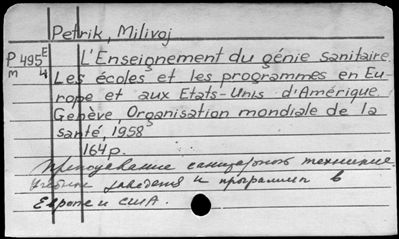 Petrik, Milivoj
P 495 E L'Enseignement du génie sanitaire.
m 4 Les écoles et les programmes en Eu-
rope et aux Etats-Unis d'Amérique
Genève, Organisation mondiale de la
santé, 1958
164 p.
Преподавание санитарной техники.
Учебные заведения и программы в
Европе и США.